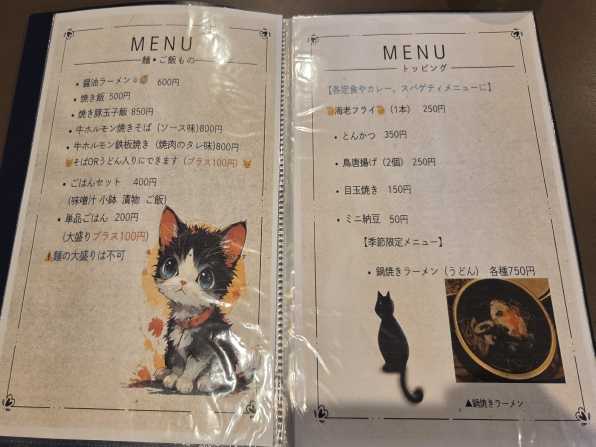 MENU
麺・ご飯もの
・醤油ラーメン 600円
・焼き飯 500円
・焼き豚玉子飯 850円
・牛ホルモン焼きそば（ソース味)800円
・牛ホルモン鉄板焼き（焼肉のタレ味)800円
そばORうどん入りにできます（プラス100円）
・ごはんセット 400円
(味噌汁 小鉢 漬物 ご飯)
・単品ごはん 200円
(大盛りプラス100円)
⚠麺の大盛りは不可
MENU
トッピング
【各定食やカレー、スパゲティメニューに】
海老フライ（1本） 250円
・とんかつ 350円
・鳥唐揚げ（2個） 250円
・目玉焼き 150円
・ミニ納豆 50円
【季節限定メニュー】
・鍋焼きラーメン（うどん） 各種750円
▲鍋焼きラーメン